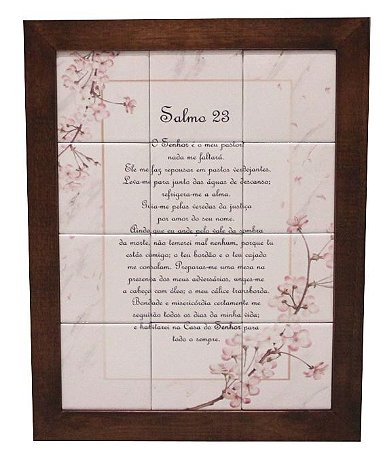 Salmo 23
O Senhor é o meu pastor
nada me faltará.
Ele me faz repousar em pastos verdejantes.
Leva-me para junto das águas de descanso;
refrigera-me a alma.
Guia-me pelas veredas da justiça
por amor do seu nome.
Ainda que eu ande pelo vale da sombra
da morte, não temerei mal nenhum, porque tu
estás comigo; o teu bordão e o teu cajado
me consolam. Preparas-me uma mesa na
presença dos meus adversários, unges-me
a cabeça com óleo; o meu cálice transborda.
Bondade e misericórdia certamente me
seguirão todos os dias da minha vida;
e habitarei na Casa do Senhor para
todo o sempre.